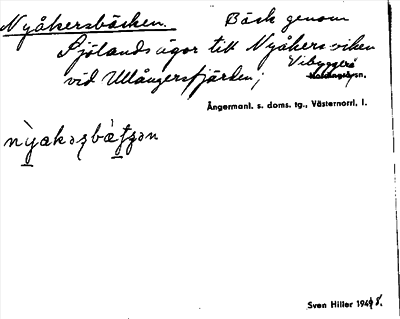 Nyåkersbäcken. Bäck genom
Sjölands ägor till Nyåkersviken
vid Ullångersfjärden;
Vibyggerå
sn.
Ångermanl. s. doms. tg., Västernorrl. l.
Sven Hiller 1948.